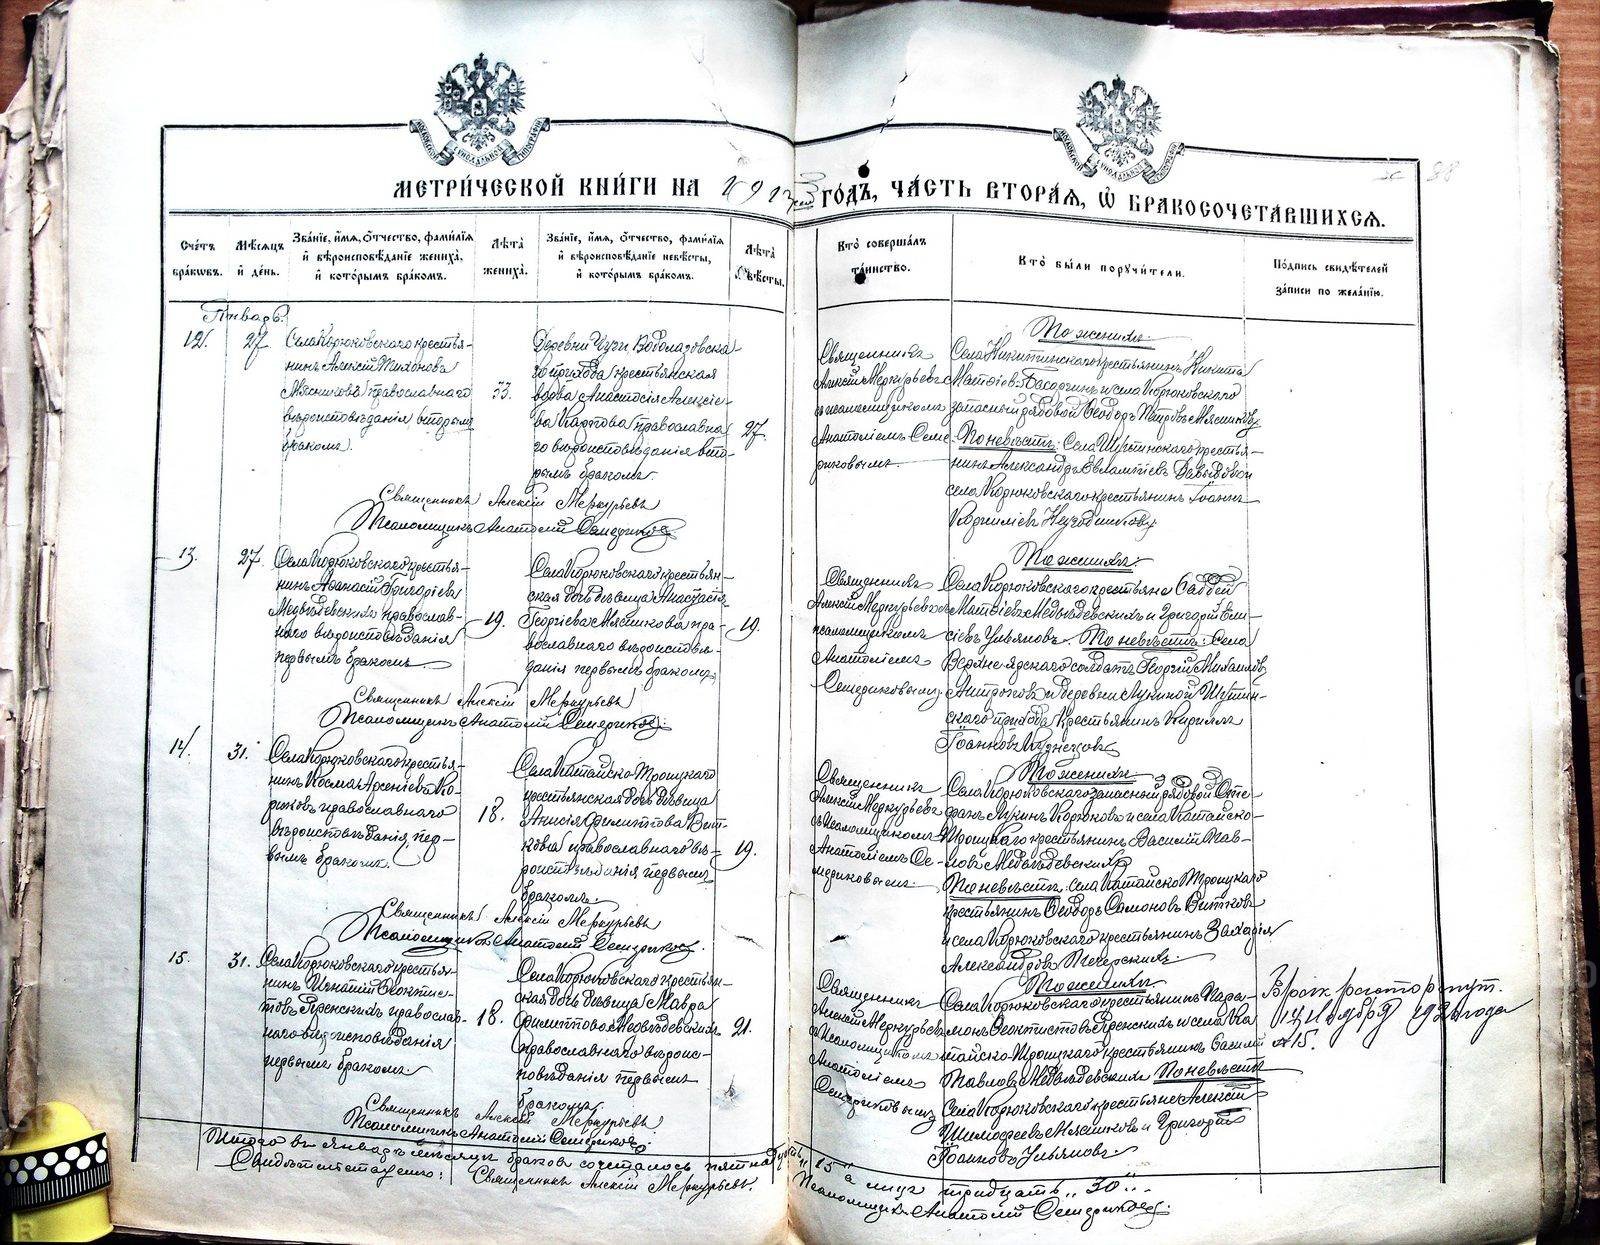 МЕТРИЧЕСКОЙ КНИГИ НА 1913 ГОДЪ, ЧАСТЬ ВТОРАЯ, Ѡ БРАКОСОЧЕТАВШИХСЯ.
88
Счетъ браковъ.
Мѣсяцъ и день.
Званіе, имя, отчество, фамилія и вѣроисповѣданіе жениха, и которымъ бракомъ.
Лѣта жениха.
Званіе, имя, отчество, фамилія и вѣроисповѣданіе невѣсты, и которымъ бракомъ.
Лѣта невѣсты.
Кто совершалъ таинство.
Кто были поручители.
Подпись свидѣтелей записи по желанію.
Январь.
12.
27
Села Корюковскаго крестья-
нинъ Алексій Тихоновъ
Мясниковъ православнаго
вѣроисповѣданія вторым
бракомъ.
33.
Деревни
прихода крестьянская
вдова Анастасія Алексіе-
ва Карпова православна-
го вѣроисповѣданія вто-
рымъ бракомъ.
27.
Священникъ
Алексій Меркурьевъ
съ псаломщикомъ
Анатоліемъ Семе-
риковымъ.
По женихѣ:
Села Никитинскаго крестьянинъ Никита
Матѳіевъ и села Корюковскаго
запасный рядовой Ѳеодоръ Петровъ Мясниковъ
По невѣстѣ: Села крестья-
нинъ Александръ Евлампіевъ
села Корюковскаго крестьянинъ Іоаннъ
Корниліевъ
Священникъ Алексій Меркурьевъ
Псаломщикъ Анатолій Семериковъ
13.
27.
Села Корюковскаго крестья-
нинъ Аѳанасій Григоріевъ
Медвѣдевскихъ православ-
наго вѣроисповѣданія
первымъ бракомъ.
19.
Села Корюковскаго крестьян-
ская дочь дѣвица Анастасія
Георгіева Мясникова пра-
вославнаго вѣроисповѣ-
данія первымъ бракомъ
19.
Священникъ
Алексій Меркурьевъ съ
псаломщикомъ
Анатоліемъ
Семериковымъ
По женихѣ:
Села Корюковскаго крестьяне Савва
Матѳіевъ Медвѣдевскихъ и Григорій Ели-
сіевъ Ульяновъ. По невѣстѣ: Села
солдатъ Георгій Михаиловъ
Антроповъ и деревни Лукиной
скаго прихода крестьянинъ Кириллъ
Іоанновъ Кузнецовъ
Священникъ Алексій Меркурьевъ
Псаломщикъ Анатолій Семериковъ
14.
31.
Села Корюковскаго крестья-
нинъ Косма Арсеніевъ Ко-
рюковъ православнаго
вѣроисповѣданія, пер-
вымъ бракомъ.
18.
Села Катайско-Троицкаго
крестьянская дочь дѣвица
Анисія Филиппова Вят-
кова православнаго вѣ-
роисповѣданія первымъ
бракомъ.
19.
Священникъ
Алексій Меркурьевъ
съ псаломщикомъ
Анатоліемъ Се-
мериковымъ.
По женихѣ
Села Корюковскаго запасный рядовой Сте-
фанъ Лукинъ Корюковъ и села Катайско-
Троицкаго крестьянинъ Василій Пав-
ловъ Медвѣдевскихъ
По невѣстѣ: Села Катайско Троицкаго
крестьянинъ Ѳеодоръ Самоновъ Вятковъ
и села Корюковскаго крестьянинъ Захарія
Александровъ Печерскихъ.
Священникъ Алексій Меркурьевъ
Псаломщикъ Анатолій Семериковъ.
15.
31.
Села Корюковскаго крестья-
нинъ Игнатій Ѳеоктис-
товъ православ-
наго вѣроисповѣданія
первымъ бракомъ.
18.
Села Корюковскаго крестьян-
ская дочь дѣвица Мавра
Филиппова Медвѣдевскихъ
православнаго вѣроис-
повѣданія первымъ
бракомъ.
21.
Священникъ
Алексій Меркурьевъ
съ псаломщикомъ
Анатоліемъ
Семериковымъ
По женихѣ:
Села Корюковскаго крестьянинъ Пара-
монъ Ѳеоктистовъ и села Ка-
тайско-Троицкаго крестьянинъ Василій
Павловъ Медвѣдевскихъ По невѣстѣ
Села Корюковскаго крестьяне Алексій
Тимоѳеевъ Мясниковъ и Григорій
Іоанновъ Ульяновъ.
Брак расторгнут.
14 ноября года
№15.
Священникъ Алексій Меркурьевъ
Псаломщикъ Анатолій Семериковъ.
Итого въ Январѣ мѣсяцѣ браковъ сочеталось пятнадцать „15“ а лицъ тридцать „30“.
Священникъ Алексій Меркурьевъ. Псаломщикъ Анатолій Семериковъ.